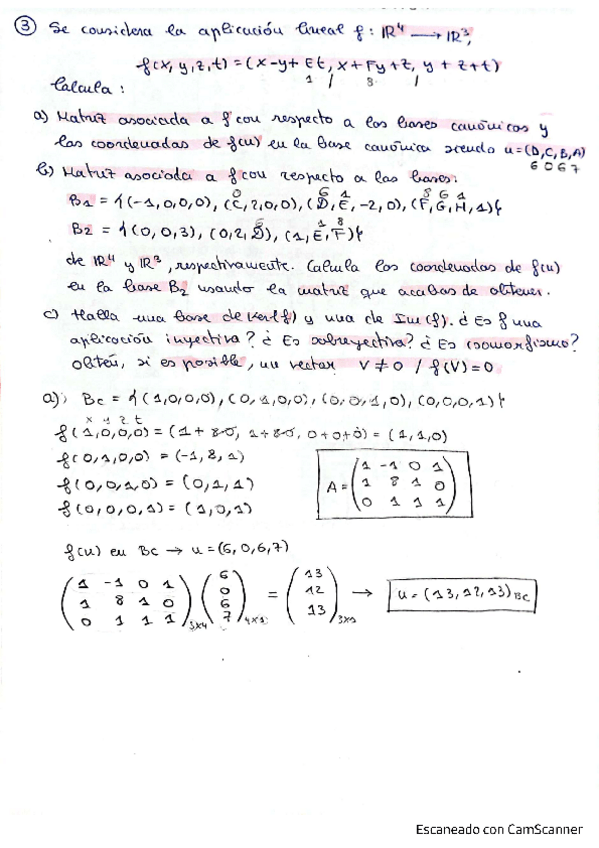 ③ Se considera la aplicación lineal f: ℝ⁴ → ℝ³,
f(x, y, z, t) = (x-y+Et, x+Fy+z, y+z+t)
1 8
Calcula:
a) Matriz asociada a f con respecto a las bases canónicas y
las coordenadas de f(u) en la base canónica siendo u=(D,C,B,A)
6 0 6 7
b) Matriz asociada a f con respecto a las bases:
0 6 1 8 6 1
B1 = {(-1,0,0,0), (C,2,0,0), (D,E,-2,0), (F,G,H,1)}
6 1 8
B2 = {(0,0,3), (0,2,D), (1,E,F)}
de ℝ⁴ y ℝ³, respectivamente. Calcula las coordenadas de f(u)
en la base B2 usando la matriz que acabas de obtener.
c) Halla una base de Ker(f) y una de Im(f). ¿Es f una
aplicación inyectiva? ¿Es sobreyectiva? ¿Es isomorfismo?
obtén, si es posible, un vector V≠0 / f(V)=0
a) Bc = {(1,0,0,0), (0,1,0,0), (0,0,1,0), (0,0,0,1)}
x y z t
f(1,0,0,0) = (1+8·0, 1+8·0, 0+0+0) = (1,1,0)
f(0,1,0,0) = (-1,8,1)
f(0,0,1,0) = (0,1,1)
f(0,0,0,1) = (1,0,1)
1 -1 0 1
A = 1 8 1 0
0 1 1 1
f(u) en Bc → u = (6,0,6,7)
1 -1 0 1 6 13
1 8 1 0 0 = 12 → u = (13,12,13)Bc
0 1 1 1 3x4 6 7 4x1 13 3x1
Escaneado con CamScanner